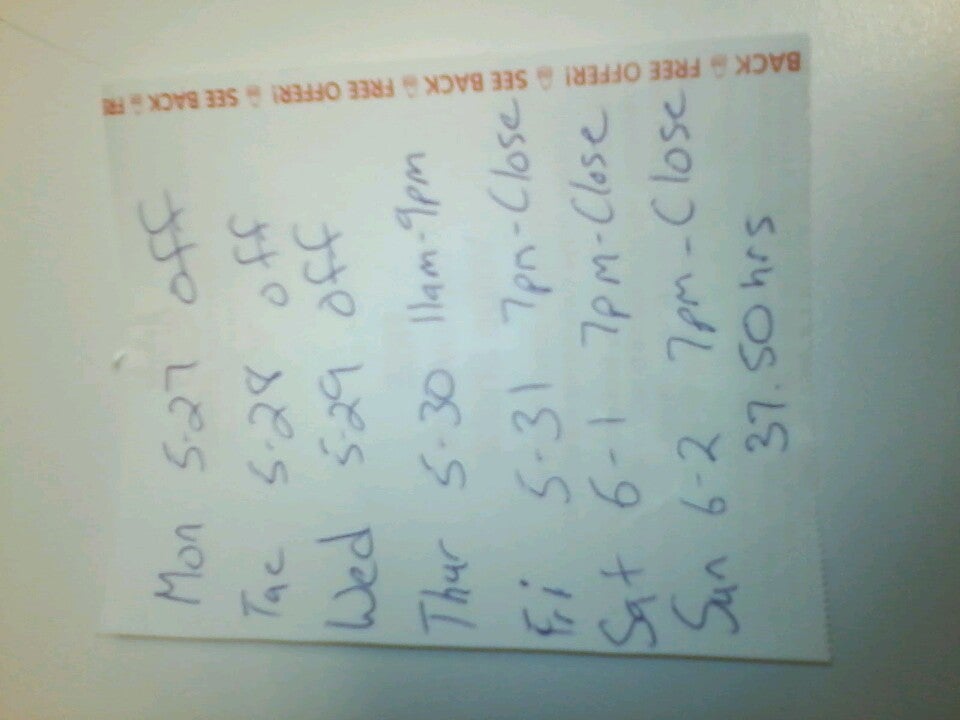 Mon 5-27 off
Tue 5-28 off
Wed 5-29 off
Thur 5-30 11am-9pm
Fri 5-31 7pm-Close
Sat 6-1 7pm-Close
Sun 6-2 7pm-Close
37.50 hrs
BACK FREE OFFER! SEE BACK FREE OFFER! SEE BACK FRE